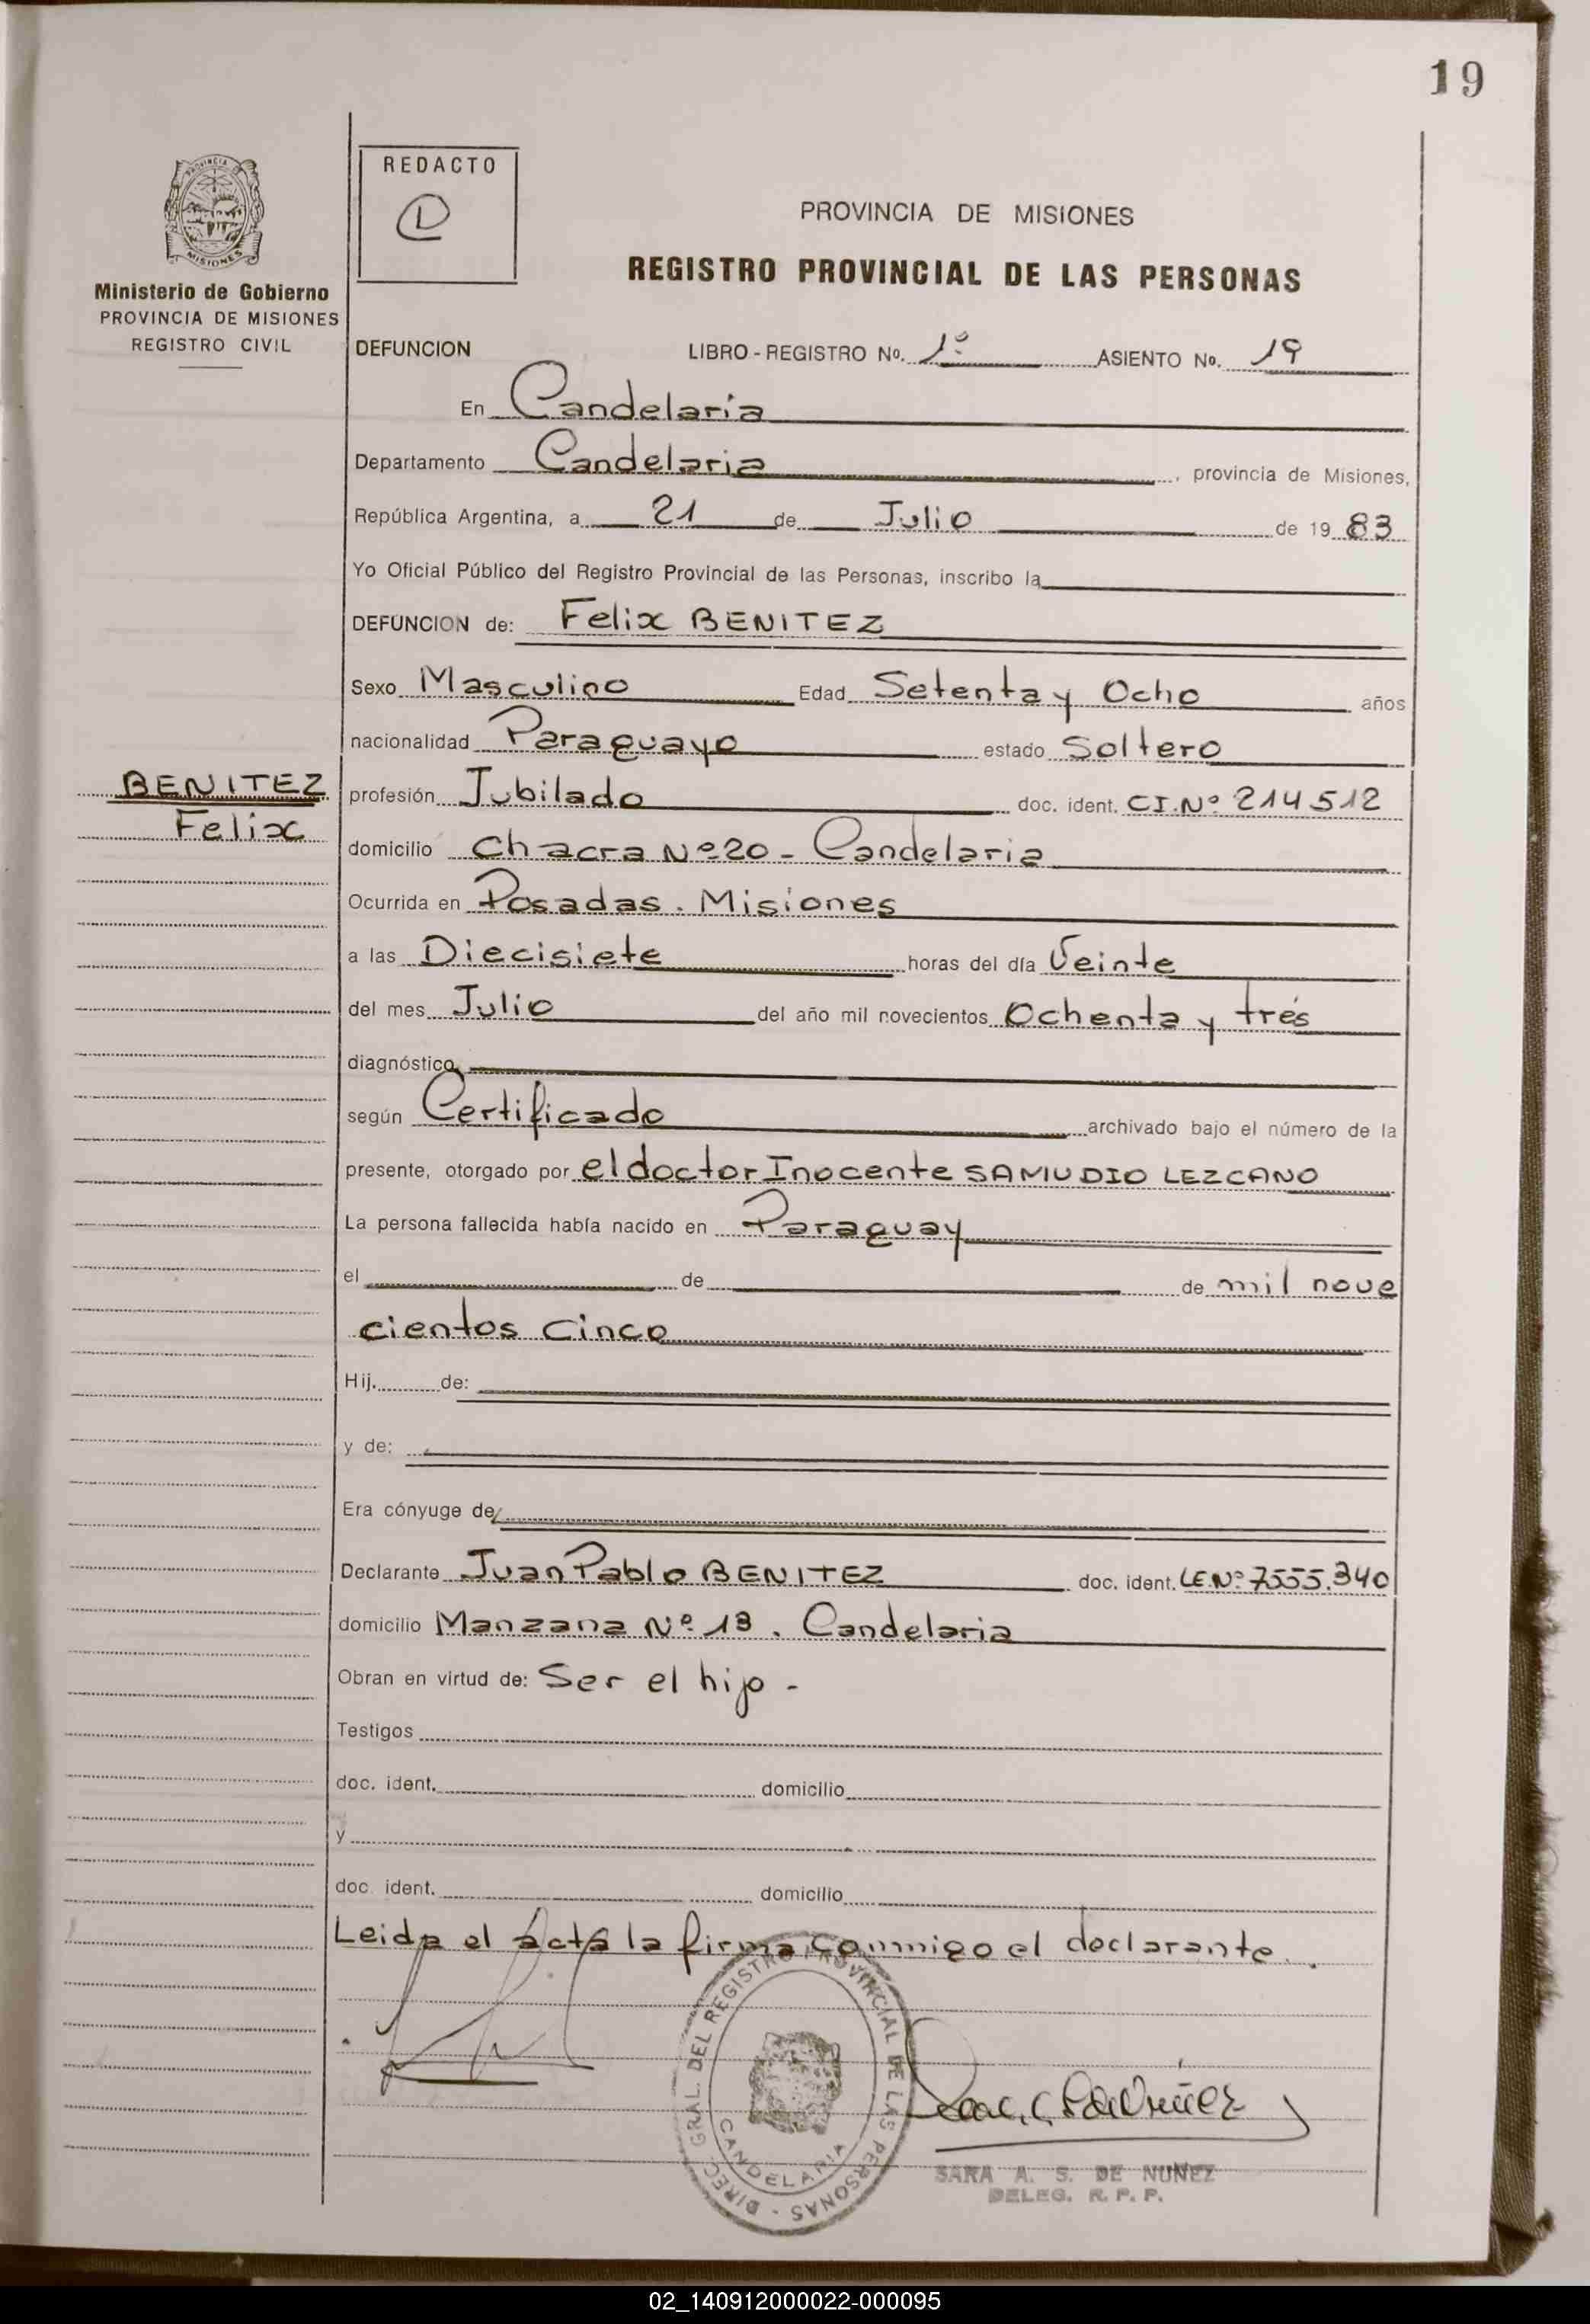 19
REDACTO
D
PROVINCIA DE MISIONES
REGISTRO PROVINCIAL DE LAS PERSONAS
MISIONES
Ministerio de Gobierno
PROVINCIA DE MISIONES
REGISTRO CIVIL
DEFUNCION LIBRO - REGISTRO No. 1º ASIENTO No. 19
En Candelaria
Departamento Candelaria, provincia de Misiones,
República Argentina, a 21 de Julio de 19 83
Yo Oficial Público del Registro Provincial de las Personas, inscribo la
DEFUNCION de: Felix BENITEZ
Sexo Masculino Edad Setenta y Ocho años
nacionalidad Paraguayo estado Soltero
BENITEZ
Felix
profesión Jubilado doc. ident. CI.Nº 214512
domicilio Chacra Nº 20 - Candelaria
Ocurrida en Posadas. Misiones
a las Diecisiete horas del día Veinte
del mes Julio del año mil novecientos Ochenta y trés
diagnóstico
según Certificado archivado bajo el número de la
presente, otorgado por el doctor Inocente SAMUDIO LEZCANO
La persona fallecida había nacido en Paraguay
el de de mil nove
cientos Cinco
Hij. de:
y de:
Era cónyuge de
Declarante Juan Pablo BENITEZ doc. ident. LE.Nº 7555.340
domicilio Manzana Nº 13. Candelaria
Obran en virtud de: Ser el hijo -
Testigos
doc. ident. domicilio
y
doc. ident. domicilio
Leida el acta la firma conmigo el declarante.
DIREC. GRAL. DEL REGISTRO PROVINCIAL DE LAS PERSONAS -
CANDELARIA
SARA A. S. DE NUÑEZ
DELEG. R. P. P.
02_140912000022-000095